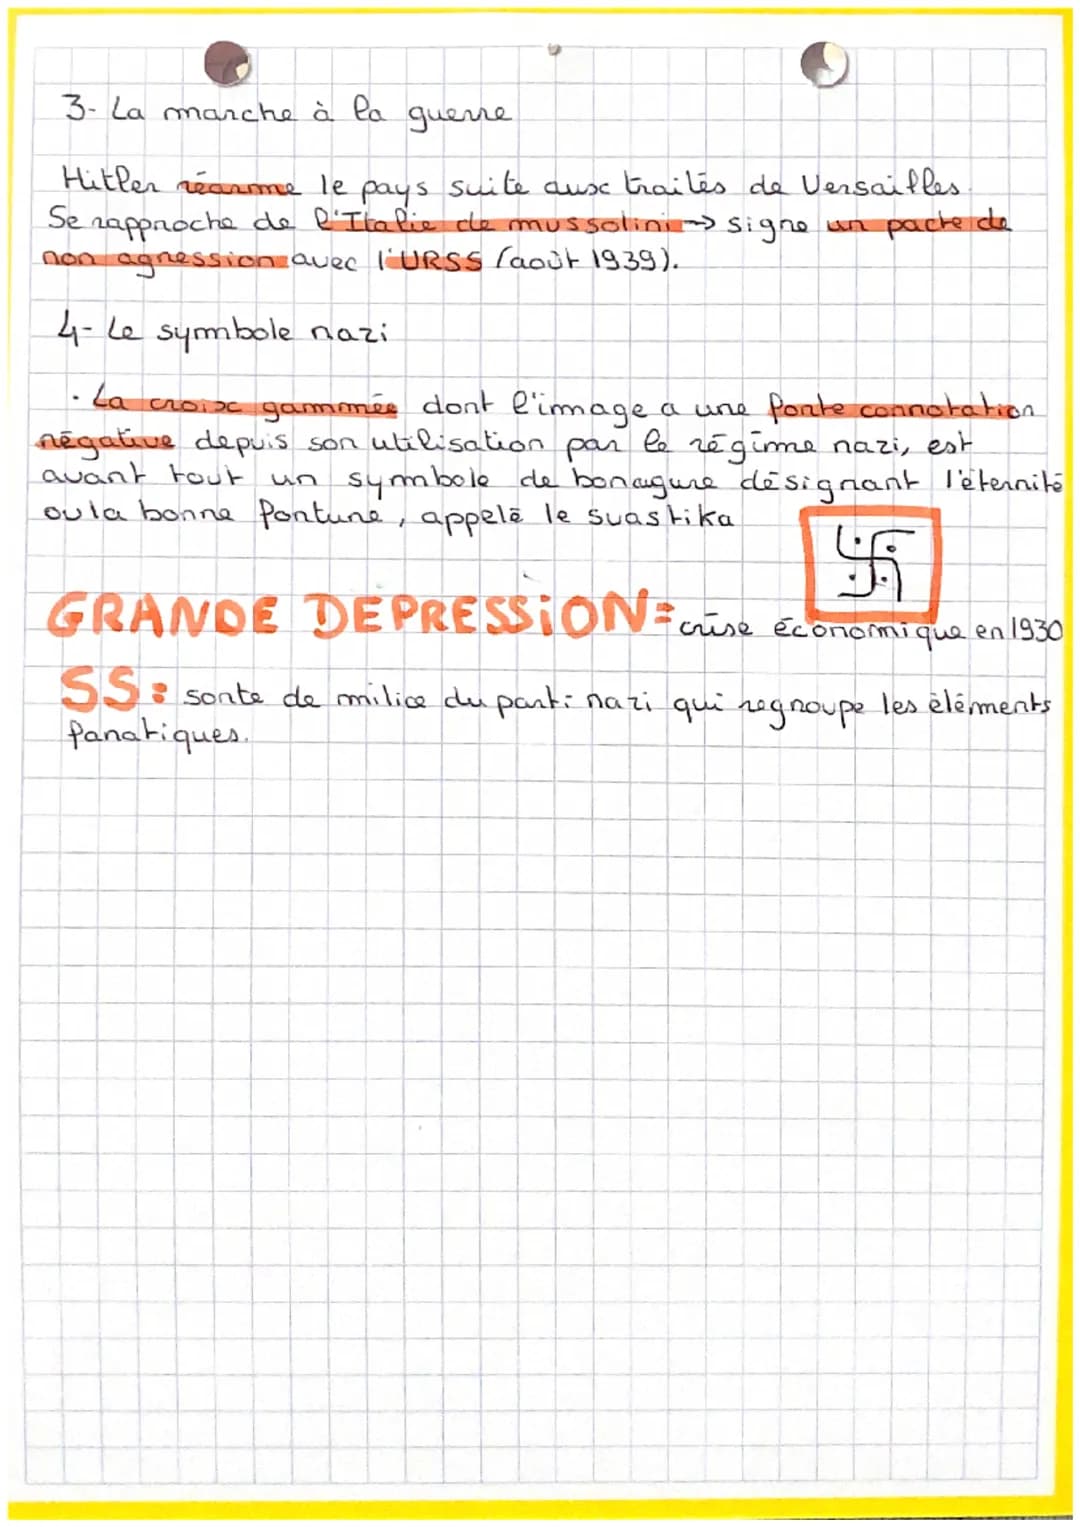 3- La marche à la guerre
Hitler réarme le pays suite aux traités de Versailles.
Se rapproche de l'Italie de mussolini → signe un pacte de
non agression avec l'URSS (août 1939).
4- Le symbole nazi
· La croix gammée dont l'image a une forte connotation
négative depuis son utilisation par le régime nazi, est
avant tout un symbole de bonagure désignant l'éternité
ou la bonne fortune, appelé le suastika
GRANDE DEPRESSiON= crise économique en 1930
SS: sorte de milice du parti nazi qui regroupe les éléments
fanatiques.